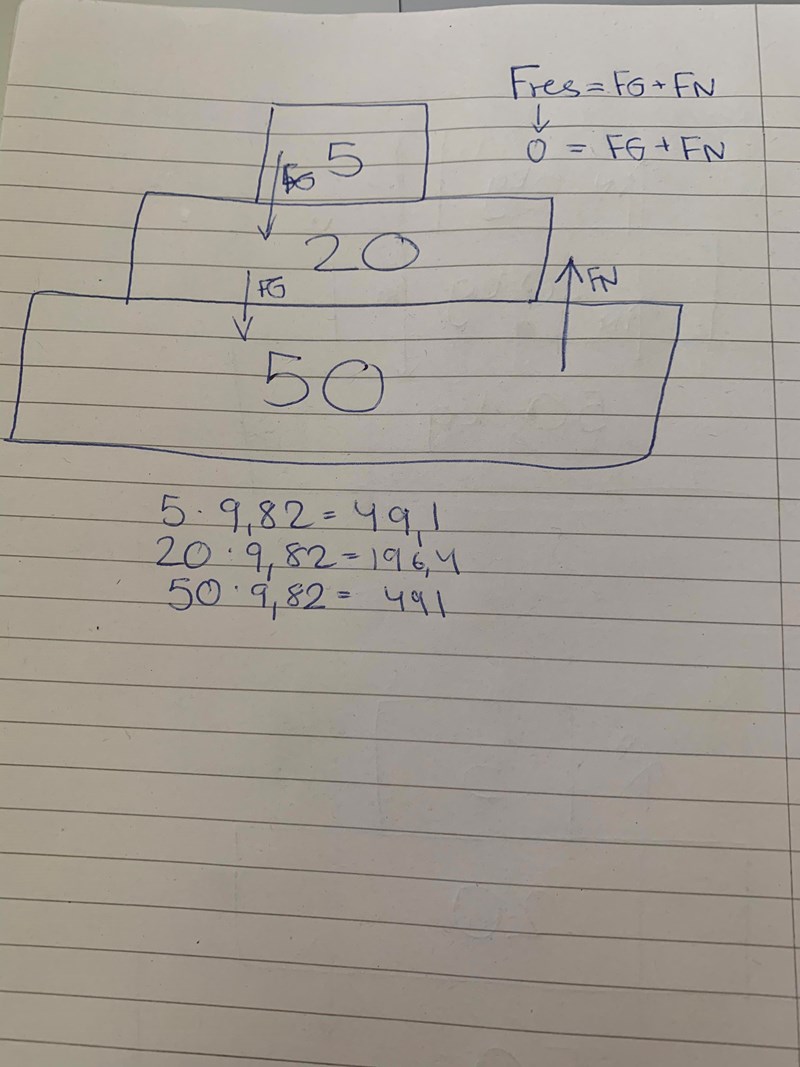 Fres = FG + FN
↓
0 = FG + FN
5
FG
20
FG
FN
50
5 · 9,82 = 49,1
20 · 9,82 = 196,4
50 · 9,82 = 491